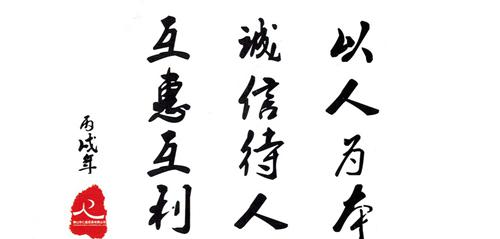 以人为本
诚信待人
互惠互利
丙戌年